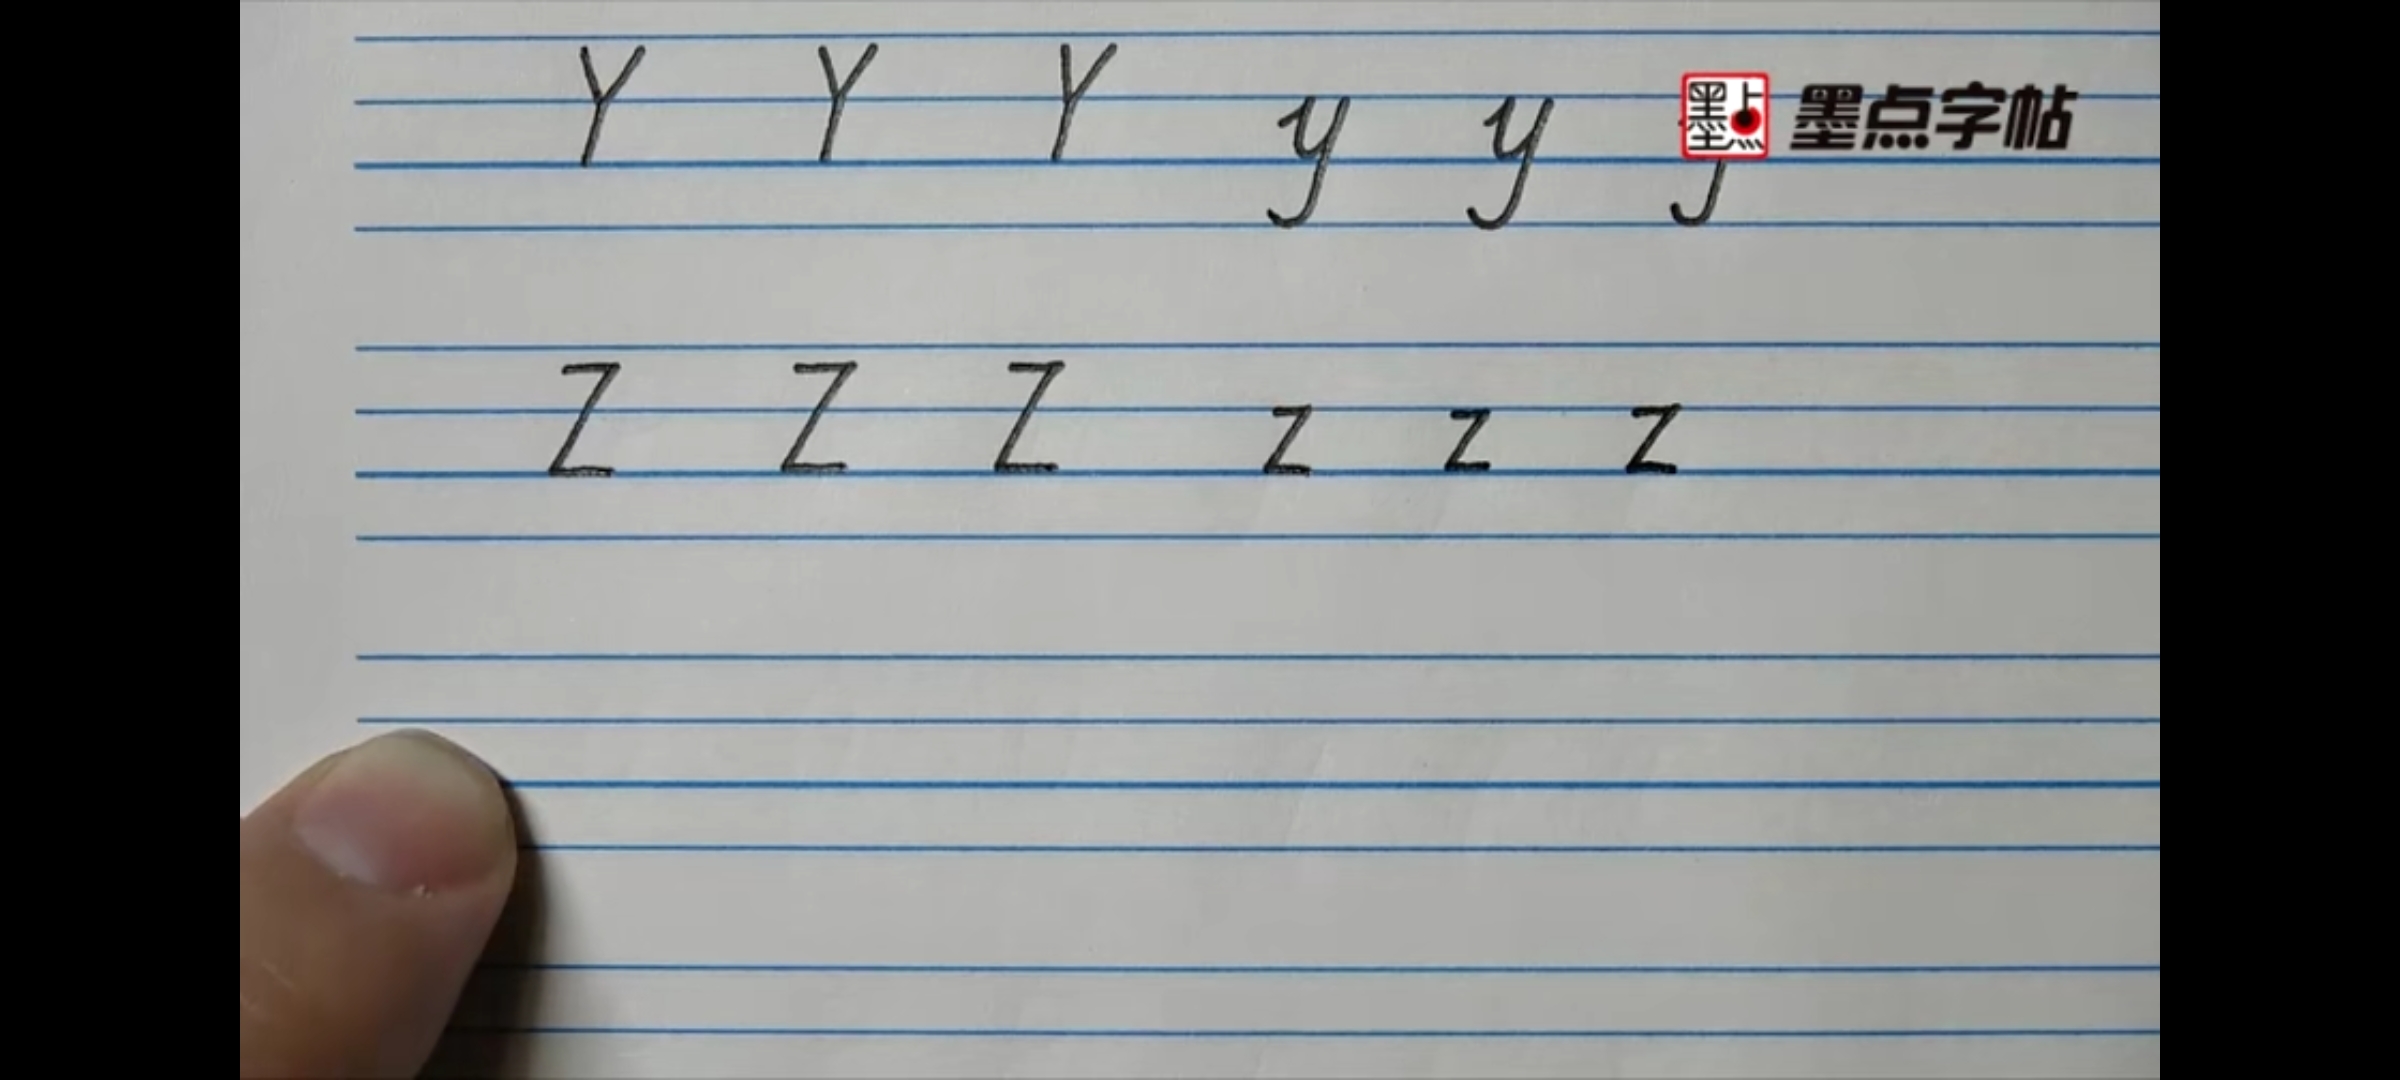 Y Y Y y y y 墨点 墨点字帖
Z Z Z z z z